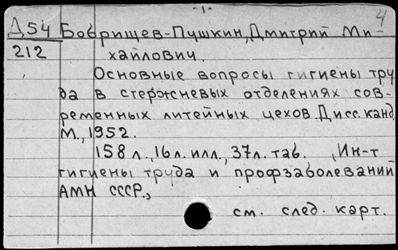 - 1 -
4
Д54 Бобрищев-Пушкин, Дмитрий Ми-
212 хайлович.
Основные вопросы гигиены тру
да в стержневых отделениях сов-
ременных литейных цехов. Дисс. канд.
М., 1952.
158 л., 16 л. илл., 37 л. таб. , Ин-т
гигиены труда и профзаболеваний
АМН СССР.,
см. след. карт.